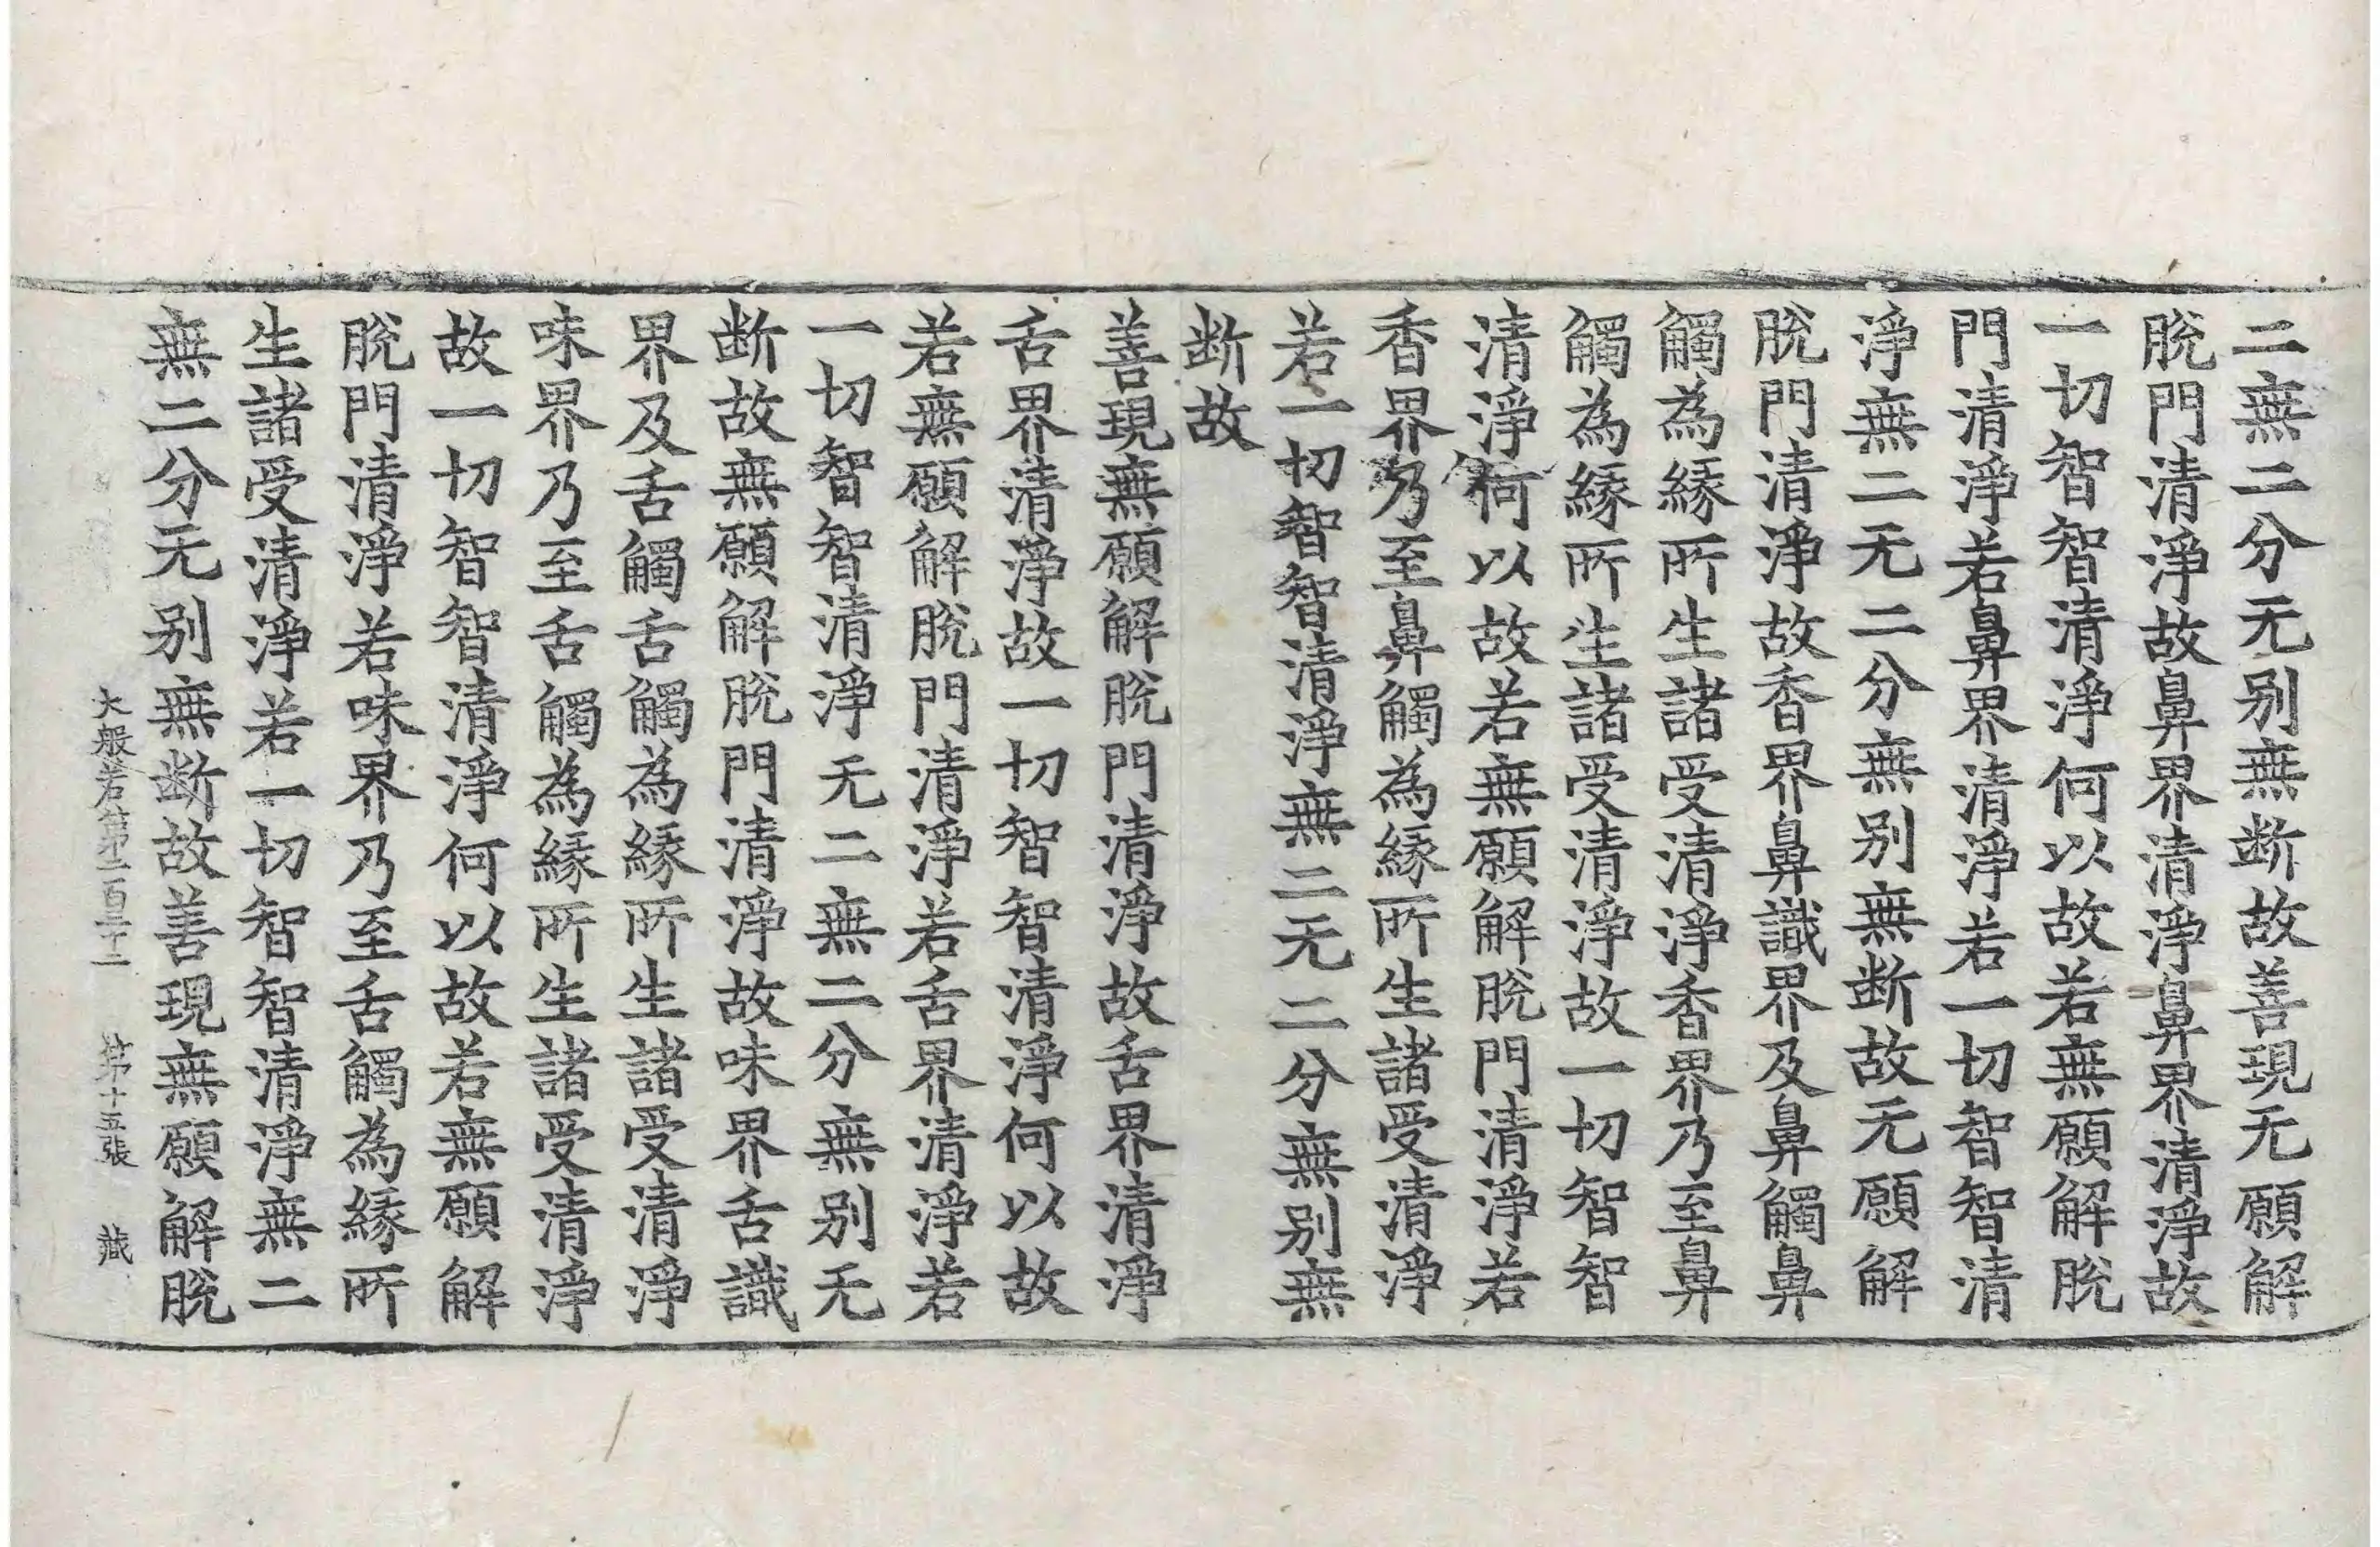 二無二分无别無断故善現无願解
脫門清淨故鼻界清淨鼻界清淨故
一切智智清淨何以故若無願解脫
門清淨若鼻界清淨若一切智智清
淨無二无二分無别無断故无願解
脫門清淨故香界鼻識界及鼻觸鼻
觸為緣所生諸受清淨香界乃至鼻
觸為緣所生諸受清淨故一切智智
清淨何以故若無願解脫門清淨若
香界乃至鼻觸為緣所生諸受清淨
若一切智智清淨無二无二分無别無
断故
善現無願解脫門清淨故舌界清淨
舌界清淨故一切智智清淨何以故
若無願解脫門清淨若舌界清淨若
一切智智清淨无二無二分無别无
断故無願解脫門清淨故味界舌識
界及舌觸舌觸為緣所生諸受清淨
味界乃至舌觸為緣所生諸受清淨
故一切智智清淨何以故若無願解
脫門清淨若味界乃至舌觸為緣所
生諸受清淨若一切智智清淨無二
無二分无别無断故善現無願解脫
大般若第二百三十二 第十五張 藏